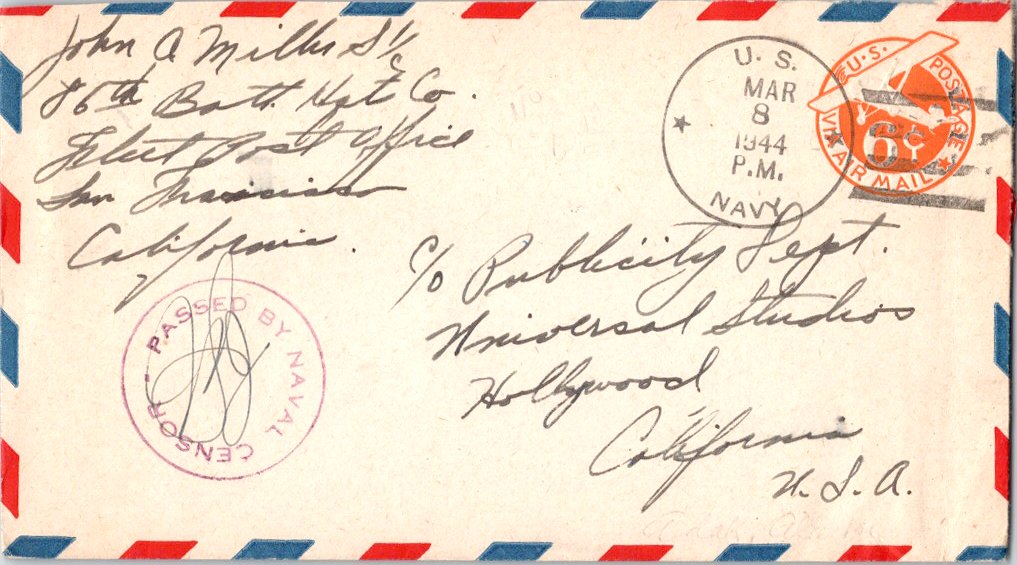 John A Miller S 1/c
86th Batt. Hq Co.
Fleet Post Office
San Francisco
California.
U. S.
MAR
8
1944
P.M.
NAVY
U.S. POSTAGE
6¢
VIA AIR MAIL
c/o Publicity Dept.
Universal Studios
Hollywood
California
U. S. A.
PASSED BY NAVAL CENSOR